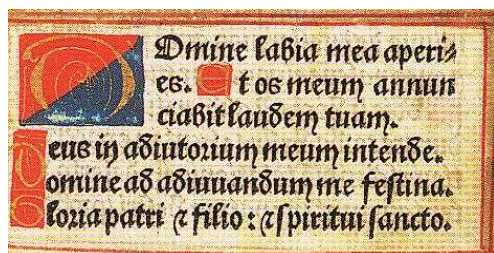 Domine labia mea aperi⸗
es. Et os meum annun
ciabit laudem tuam.
Deus in adiutorium meum intende.
Domine ad adiuuandum me festina.
Gloria patri ⁊ filio : ⁊ spiritui sancto.